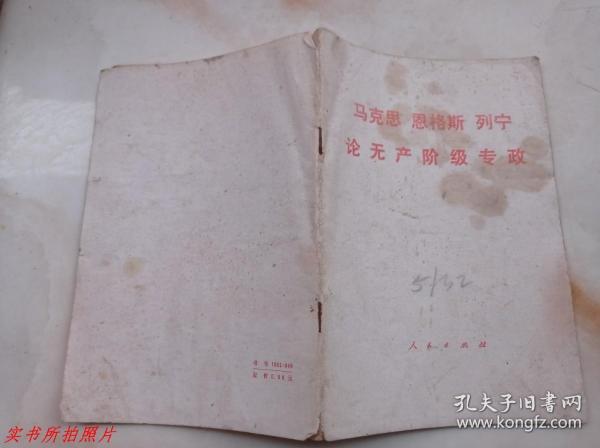 马克思 恩格斯 列宁
论无产阶级专政
5/32
人民出版社
实书所拍照片
孔夫子旧书网
www.kongfz.com